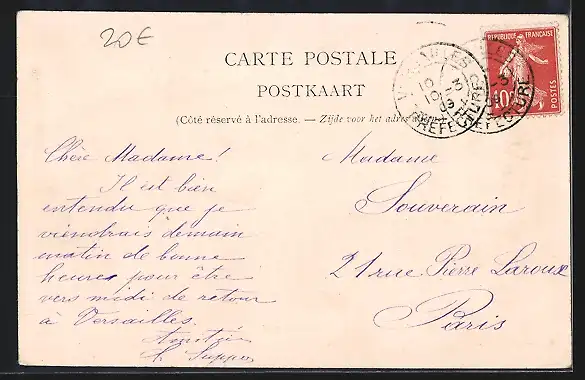 20€
CARTE POSTALE
POSTKAART
(Côté réservé à l'adresse. — Zijde voor het adres
REPUBLIQUE FRANÇAISE
10c
POSTES
VERSAILLES
PREFECTURE
Chère Madame!
Il est bien
entendu que je
viendrais demain
matin de bonne
heure, pour être
vers midi de retour
à Versailles.
Madame
Souverain
21 rue Pierre Larousse
Paris